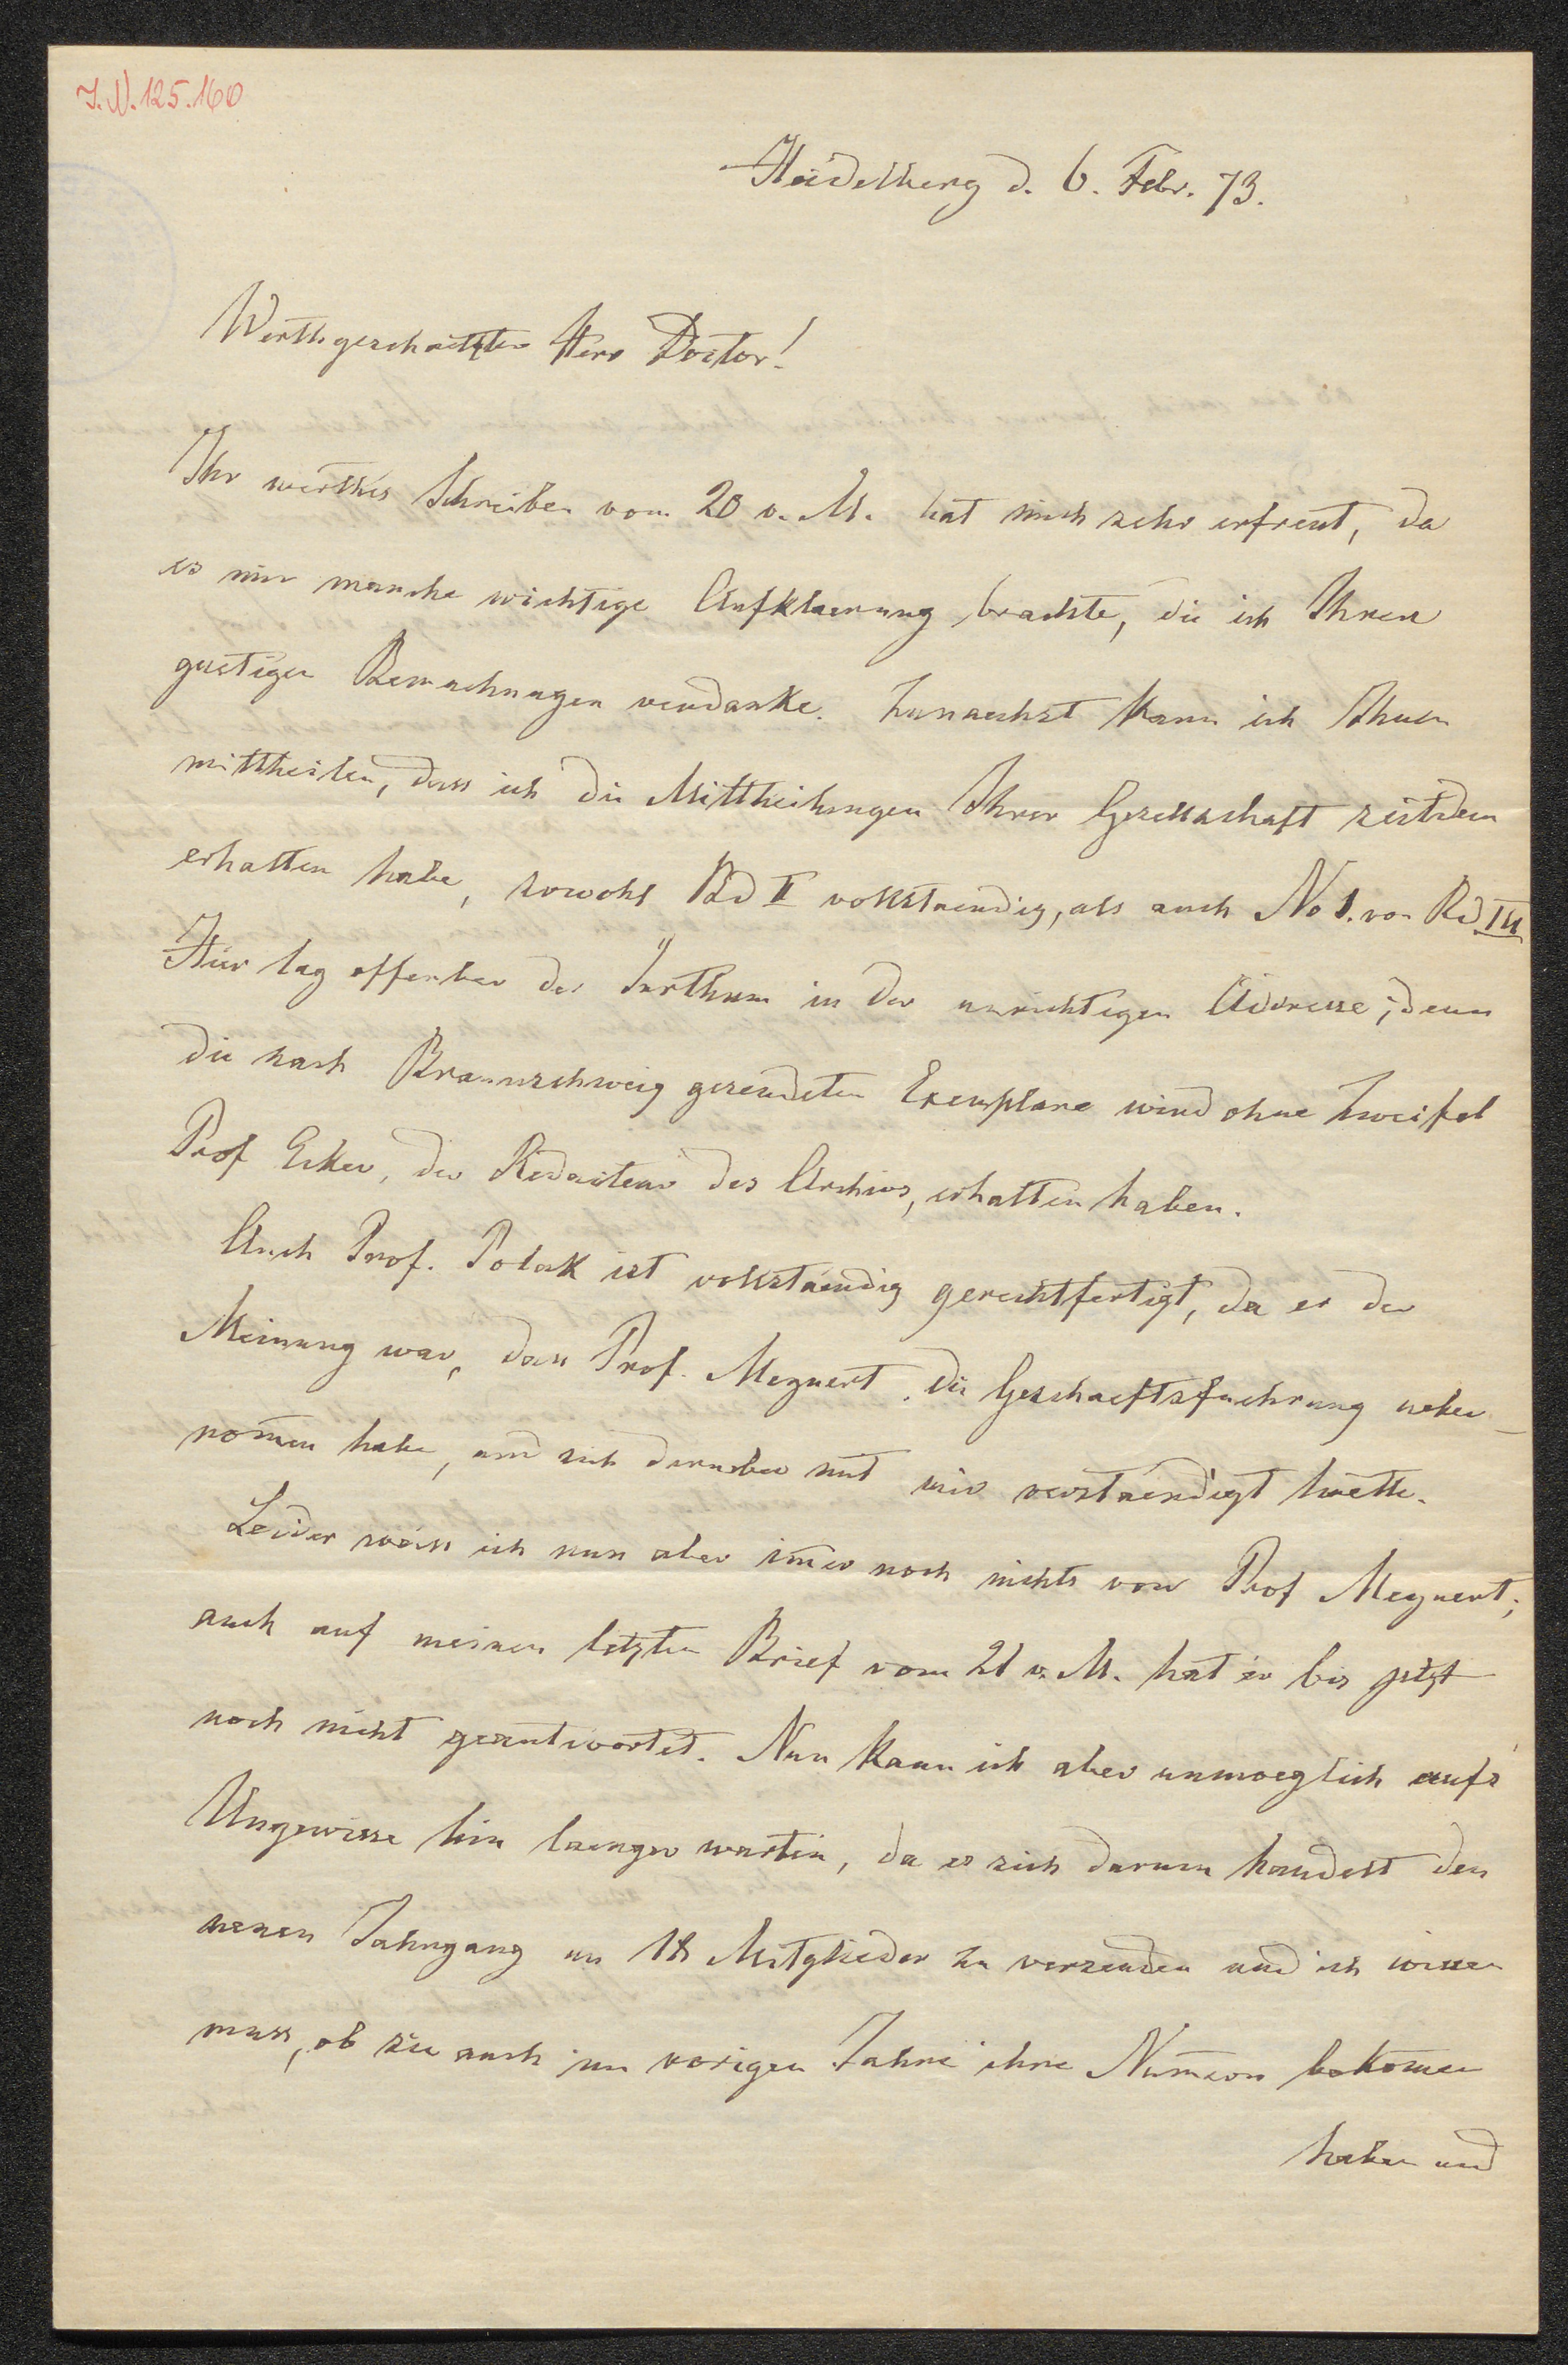 I.N. 125.160
Heidelberg d. 6. Febr. 73.
Werthgeschaetzter Herr Doctor!
Ihr werthes Schreiben vom 20 v. M. hat mich sehr erfreut, da
es mir manche wichtige Aufklaerung brachte, die ich Ihren
guetigen Bemuehungen verdanke. Zunaechst kann ich Ihnen
mittheilen, dass ich die Mittheilungen Ihrer Gesellschaft seitdem
erhalten habe, sowohl Bd II vollstaendig, als auch No 1. von Bd III
Hier lag offenbar der Irrthum in der unrichtigen Addresse; denn
die nach Braunschweig gesendeten Exemplare wird ohne Zweifel
Prof Ecker, der Redacteur des Archivs, erhalten haben.
Auch Prof. Polak ist vollstaendig gerechtfertigt, da er der
Meinung war, dass Prof. Meynert die Geschaeftsfuehrung ueber-
nom̄en habe, und sich darueber mit mir verstaendigt haette.
Leider weiss ich nun aber im̄er noch nichts von Prof Meynert;
auch auf meinen letzten Brief vom 21 v. M. hat er bis jetzt
noch nicht geantwortet. Nun kann ich aber unmoeglich aufs
Ungewisse hin laenger warten, da es sich darum handelt den
neuen Jahrgang an 18 Mitglieder zu versenden und ich wissen
muss, ob sie auch im vorigen Jahre ihre Num̄ern bekom̄en
haben und